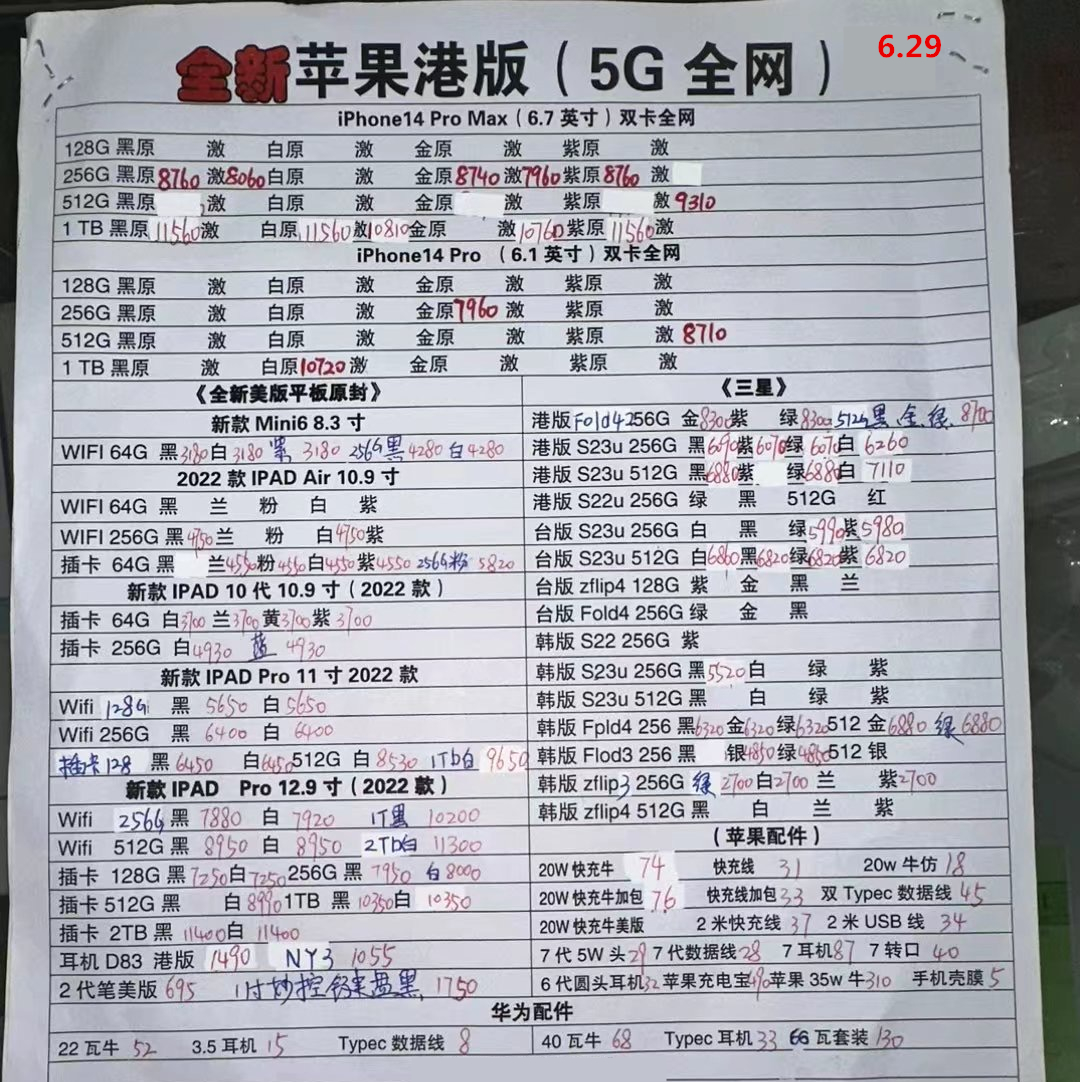 全新苹果港版（5G 全网）
6.29
iPhone14 Pro Max（6.7 英寸）双卡全网
128G 黑原 激 白原 激 金原 激 紫原 激
256G 黑原 8760 激 8060 白原 激 金原 8740 激 7960 紫原 8760 激
512G 黑原 激 白原 激 金原 激 紫原 激 9310
1 TB 黑原 11560 激 白原 11560 激 10810 金原 激 10760 紫原 11560 激
iPhone14 Pro （6.1 英寸）双卡全网
128G 黑原 激 白原 激 金原 激 紫原 激
256G 黑原 激 白原 激 金原 7960 激 紫原 激
512G 黑原 激 白原 激 金原 激 紫原 激 8710
1 TB 黑原 激 白原 10720 激 金原 激 紫原 激
《全新美版平板原封》
新款 Mini6 8.3 寸
WIFI 64G 黑 3180 白 3180 紫 3180 256G 黑 4280 白 4280
2022 款 IPAD Air 10.9 寸
WIFI 64G 黑 兰 粉 白 紫
WIFI 256G 黑 4750 兰 粉 白 4750 紫
插卡 64G 黑 兰 4550 粉 4550 白 4550 紫 4550 256G 粉 5820
新款 IPAD 10 代 10.9 寸（2022 款）
插卡 64G 白 3700 兰 3700 黄 3700 紫 3700
插卡 256G 白 4930 蓝 4930
新款 IPAD Pro 11 寸 2022 款
Wifi 128G 黑 5650 白 5650
Wifi 256G 黑 6400 白 6400
插卡 128 黑 6450 白 6450 512G 白 8530 1Tb白 9650
新款 IPAD Pro 12.9 寸（2022 款）
Wifi 256G 黑 7880 白 7920 1T黑 10200
Wifi 512G 黑 8950 白 8950 2Tb白 11300
插卡 128G 黑 7250 白 7250 256G 黑 7950 白 8000
插卡 512G 黑 白 8990 1TB 黑 10350 白 10350
插卡 2TB 黑 11400 白 11400
耳机 D83 港版 1490 NY3 1055
2 代笔美版 695 11寸妙控键盘黑 1750
《三星》
港版 Fold4 256G 金 8300 紫 绿 8300 512G 黑、金、绿 8700
港版 S23u 256G 黑 6090 紫 6070 绿 6070 白 6260
港版 S23u 512G 黑 6880 紫 绿 6880 白 7110
港版 S22u 256G 绿 黑 512G 红
台版 S23u 256G 白 黑 绿 5990 紫 5980
台版 S23u 512G 白 6860 黑 6820 绿 6820 紫 6820
台版 zflip4 128G 紫 金 黑 兰
台版 Fold4 256G 绿 金 黑
韩版 S22 256G 紫
韩版 S23u 256G 黑 5520 白 绿 紫
韩版 S23u 512G 黑 白 绿 紫
韩版 Fpld4 256 黑 6320 金 6320 绿 6320 512 金 6880 绿 6880
韩版 Flod3 256 黑 银 4850 绿 4850 512 银
韩版 zflip3 256G 绿 2700 白 2700 兰 紫 2700
韩版 zflip4 512G 黑 白 兰 紫
（苹果配件）
20W 快充牛 74 快充线 31 20w 牛仿 18
20W 快充牛加包 76 快充线加包 33 双 Typec 数据线 45
20W 快充牛美版 2 米快充线 37 2 米 USB 线 34
7 代 5W 头 29 7 代数据线 28 7 耳机 87 7 转口 40
6 代圆头耳机 32 苹果充电宝 490 苹果 35w 牛 310 手机壳膜 5
华为配件
22 瓦牛 52 3.5 耳机 15 Typec 数据线 8 40 瓦牛 68 Typec 耳机 33 66 瓦套装 130